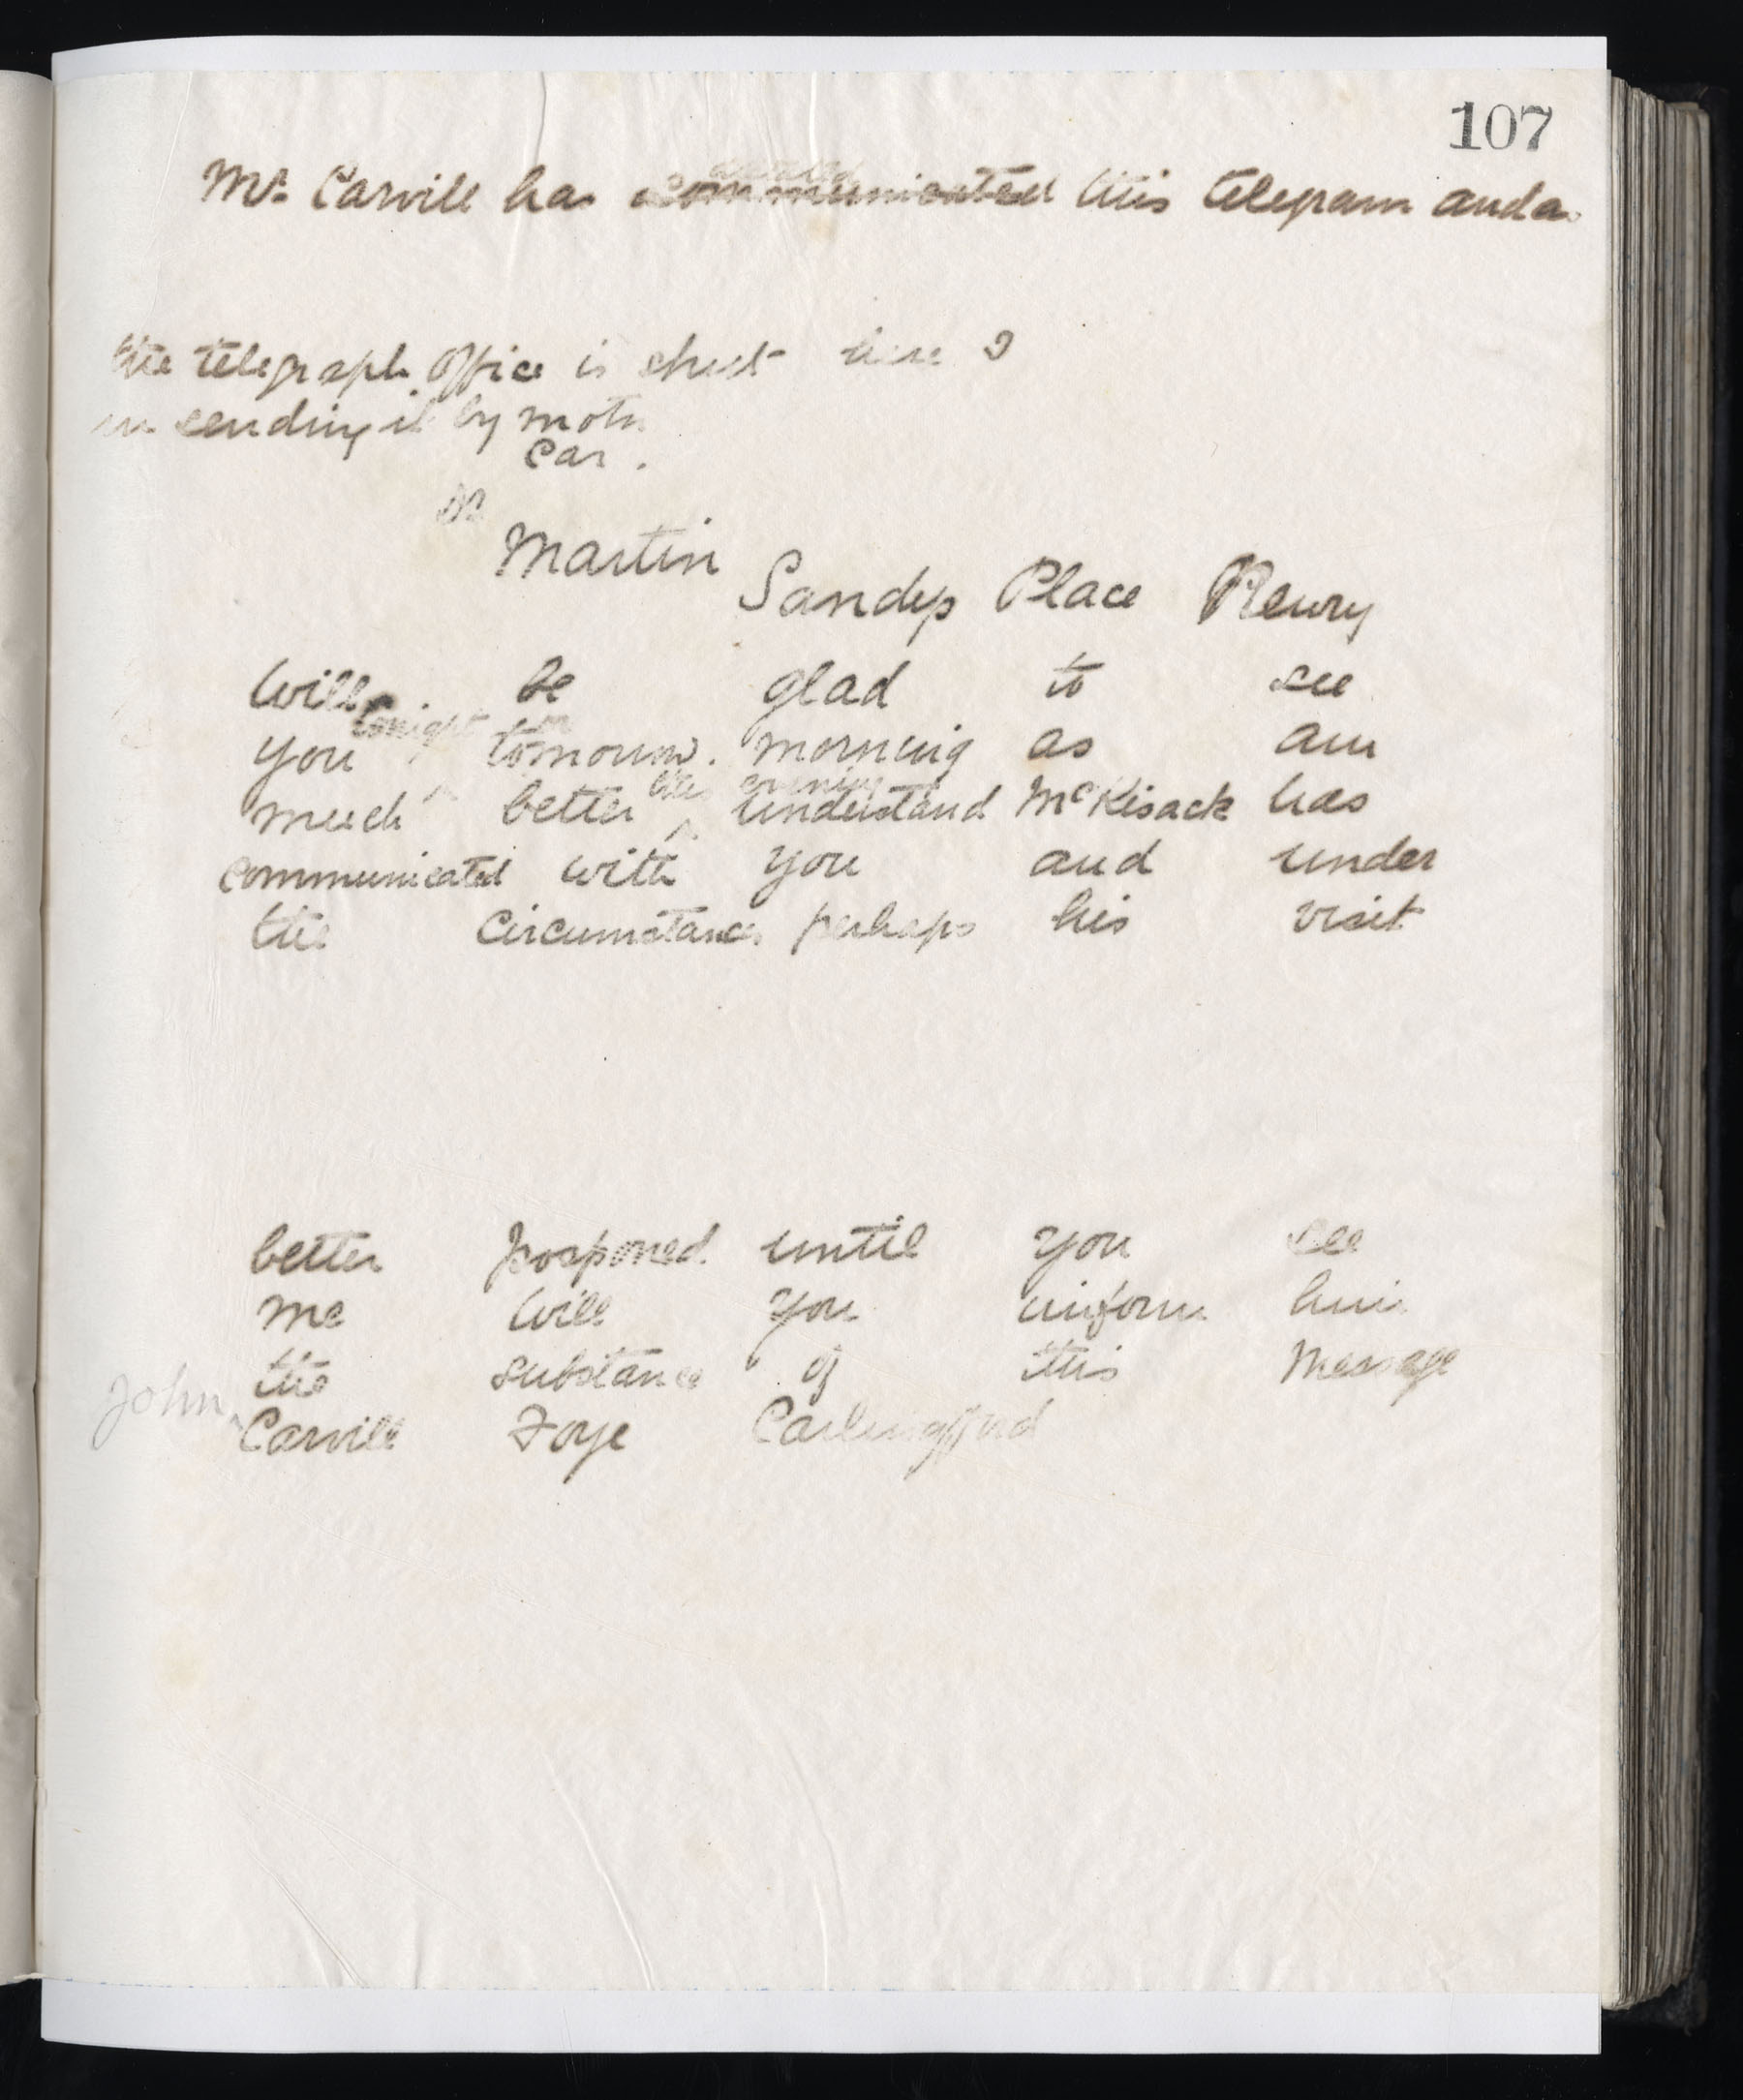 107
Mr. Carvill has communicated this telegram and as
the telegraph Office is shut here I
in sending it by motor
Car.
Dr
Martin
Sandys Place Newry
Will be glad to see
tonight or
you tomorrow. morning as am
this evening
much better understand McKisack has
communicated with you and under
the Circumstances perhaps his visit
better posponed until you see
me Will you inform him
the substance of this Message
John
Carvill Foye Carlingford